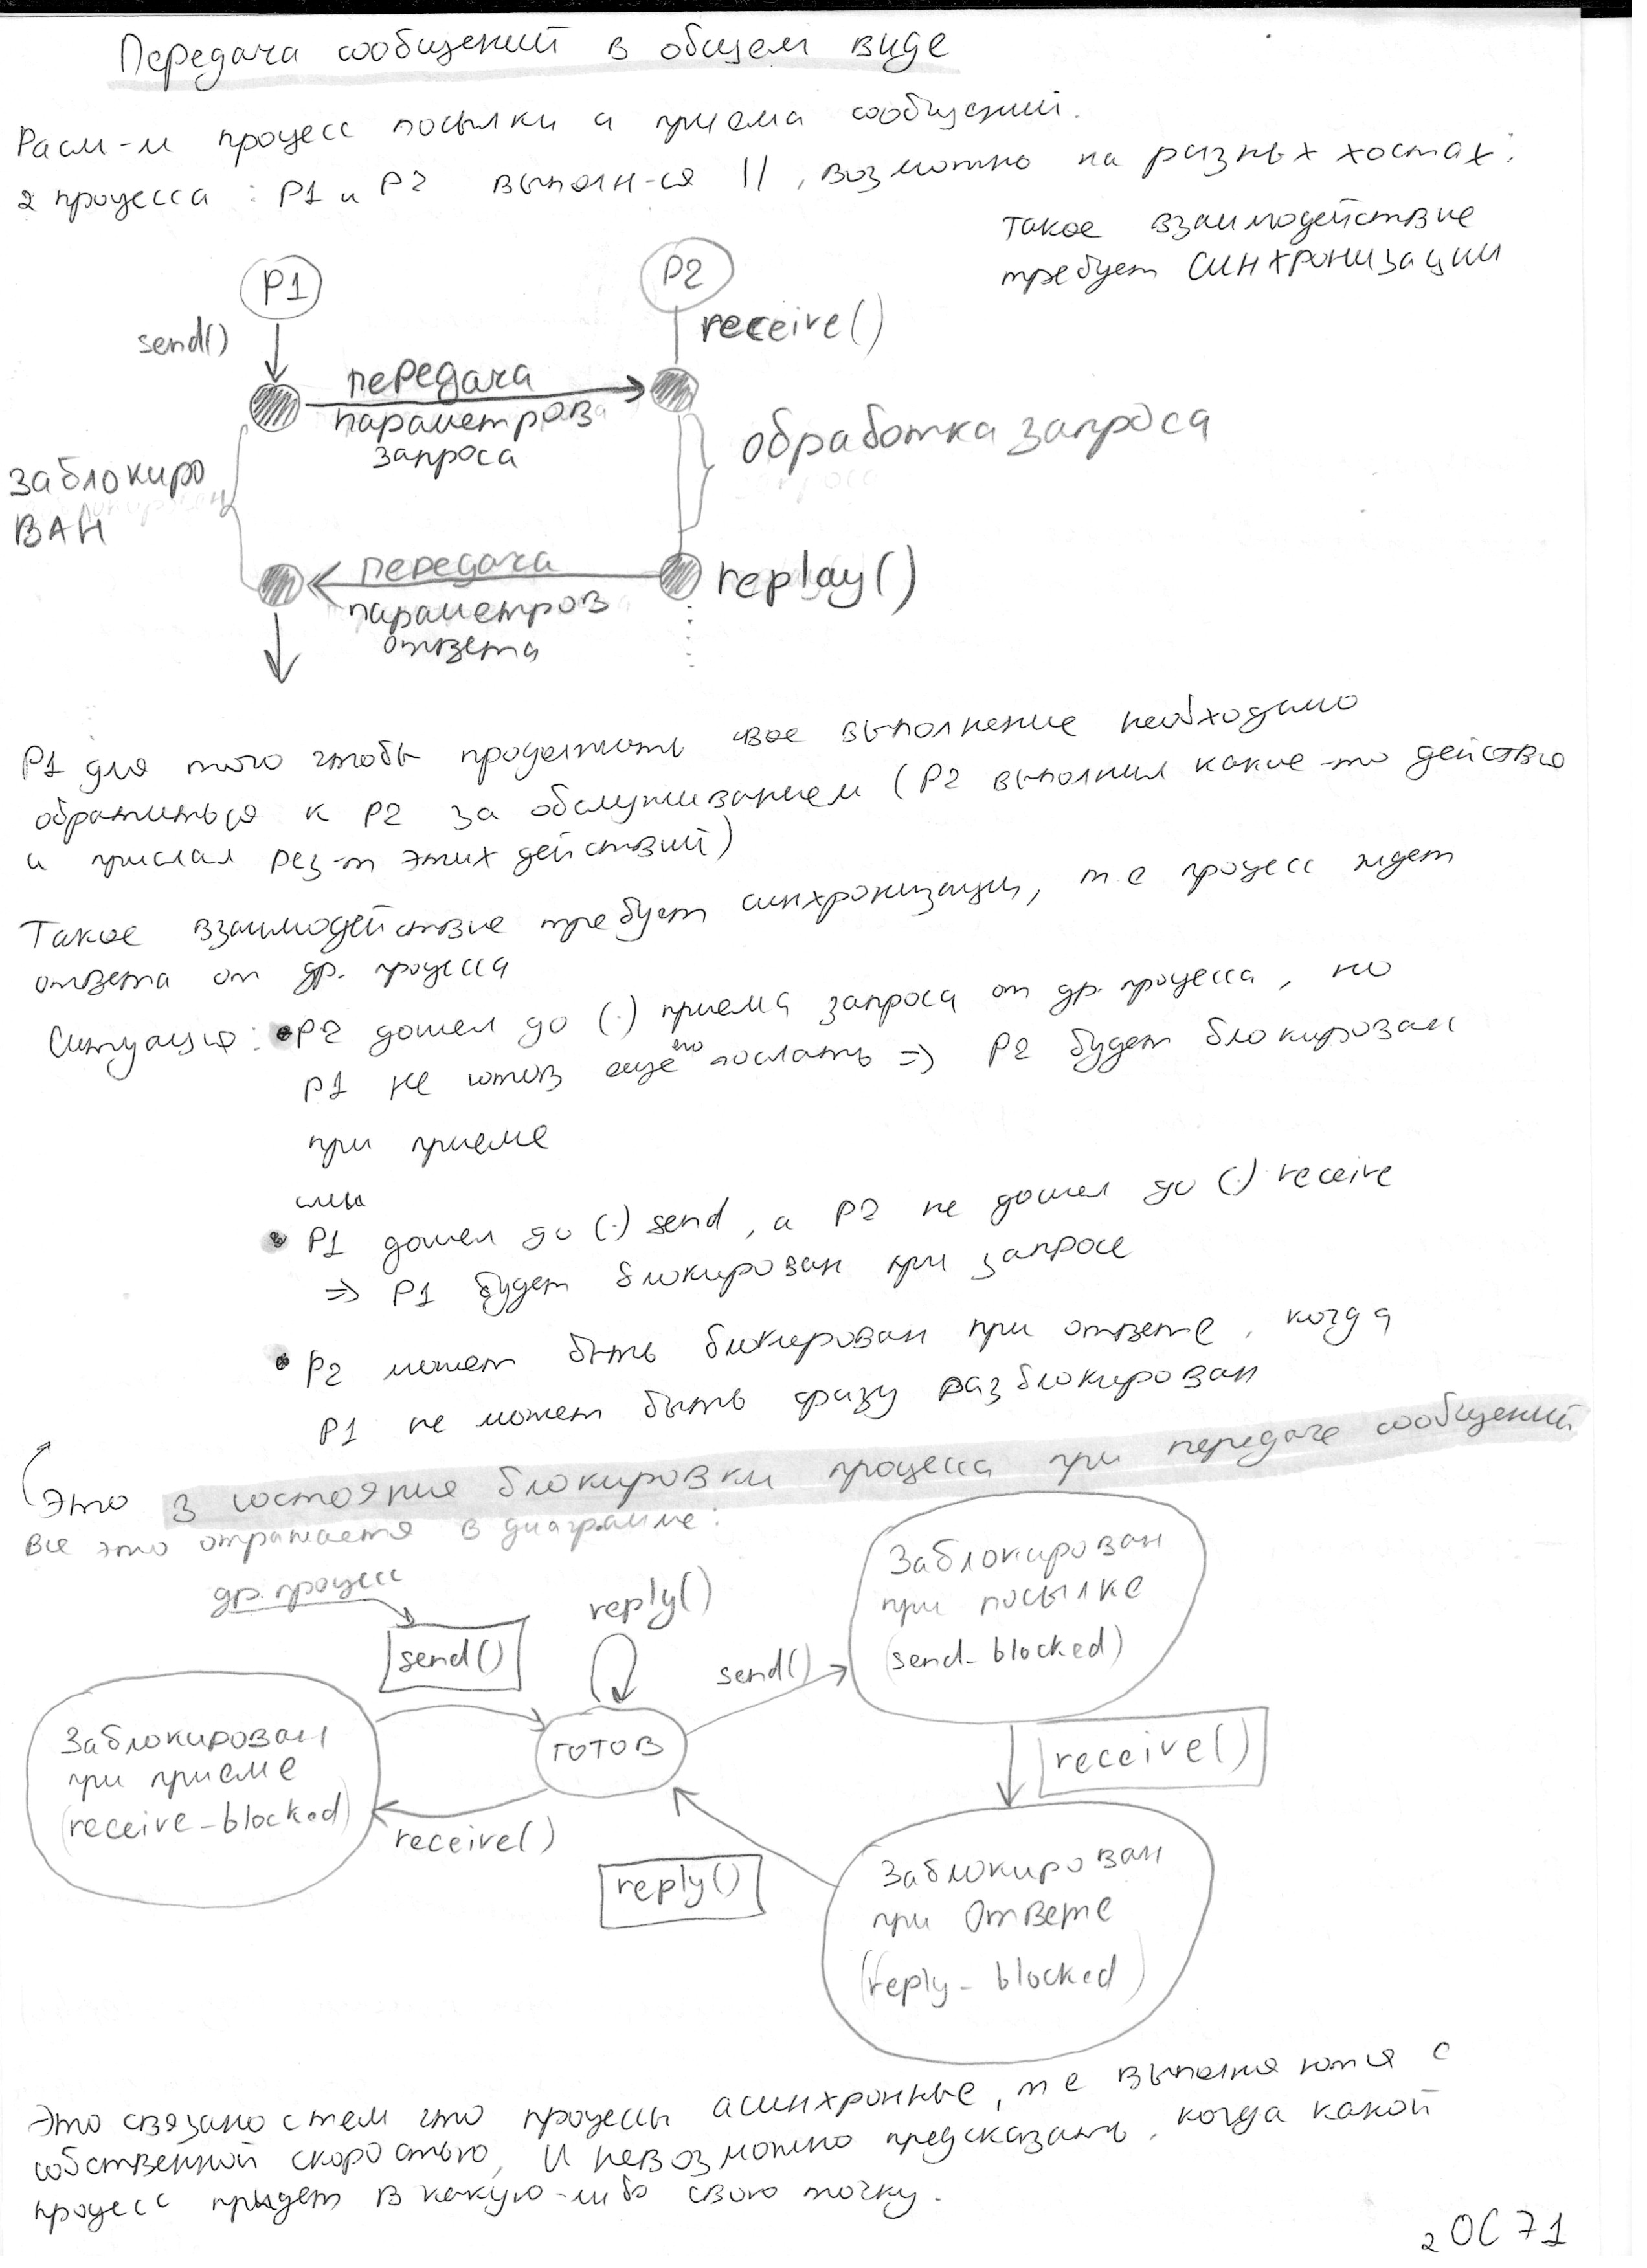 Передача сообщений в общем виде
Расм-м процесс посылки и приема сообщений.
2 процесса : P1 и P2 выполн-ся ||, возможно на разных хостах:
такое взаимодействие
требует синхронизации
P1
P2
send()
receive()
передача
параметров
запроса
обработка запроса
заблокиро
ван
передача
параметров
ответа
replay()
P1 для того чтобы продолжить свое выполнение необходимо
обратиться к P2 за обслуживанием (P2 выполнил какие-то действия
и прислал рез-т этих действий)
Такое взаимодействие требует синхронизации, т е процесс ждет
ответа от др. процесса
Ситуация: • P2 дошел до (.) приема запроса от др. процесса, но
P1 не готов еще его послать => P2 будет блокирован
при приеме
или
• P1 дошел до (.) send, а P2 не дошел до (.) receive
=> P1 будет блокирован при запросе
• P2 может быть блокирован при ответе, когда
P1 не может быть сразу разблокирован
Это 3 состояние блокировки процесса при передаче сообщений
Все это отражается в диаграмме:
др. процесс
send()
reply()
send()
Заблокирован
при посылке
(send_blocked)
Заблокирован
при приеме
(receive_blocked)
готов
receive()
receive()
reply()
Заблокирован
при ответе
(reply_blocked)
Это связано с тем что процессы асинхронные, т е выполняются с
собственной скоростью, и невозможно предсказать, когда какой
процесс придет в какую-либо свою точку.
2 ОС 71